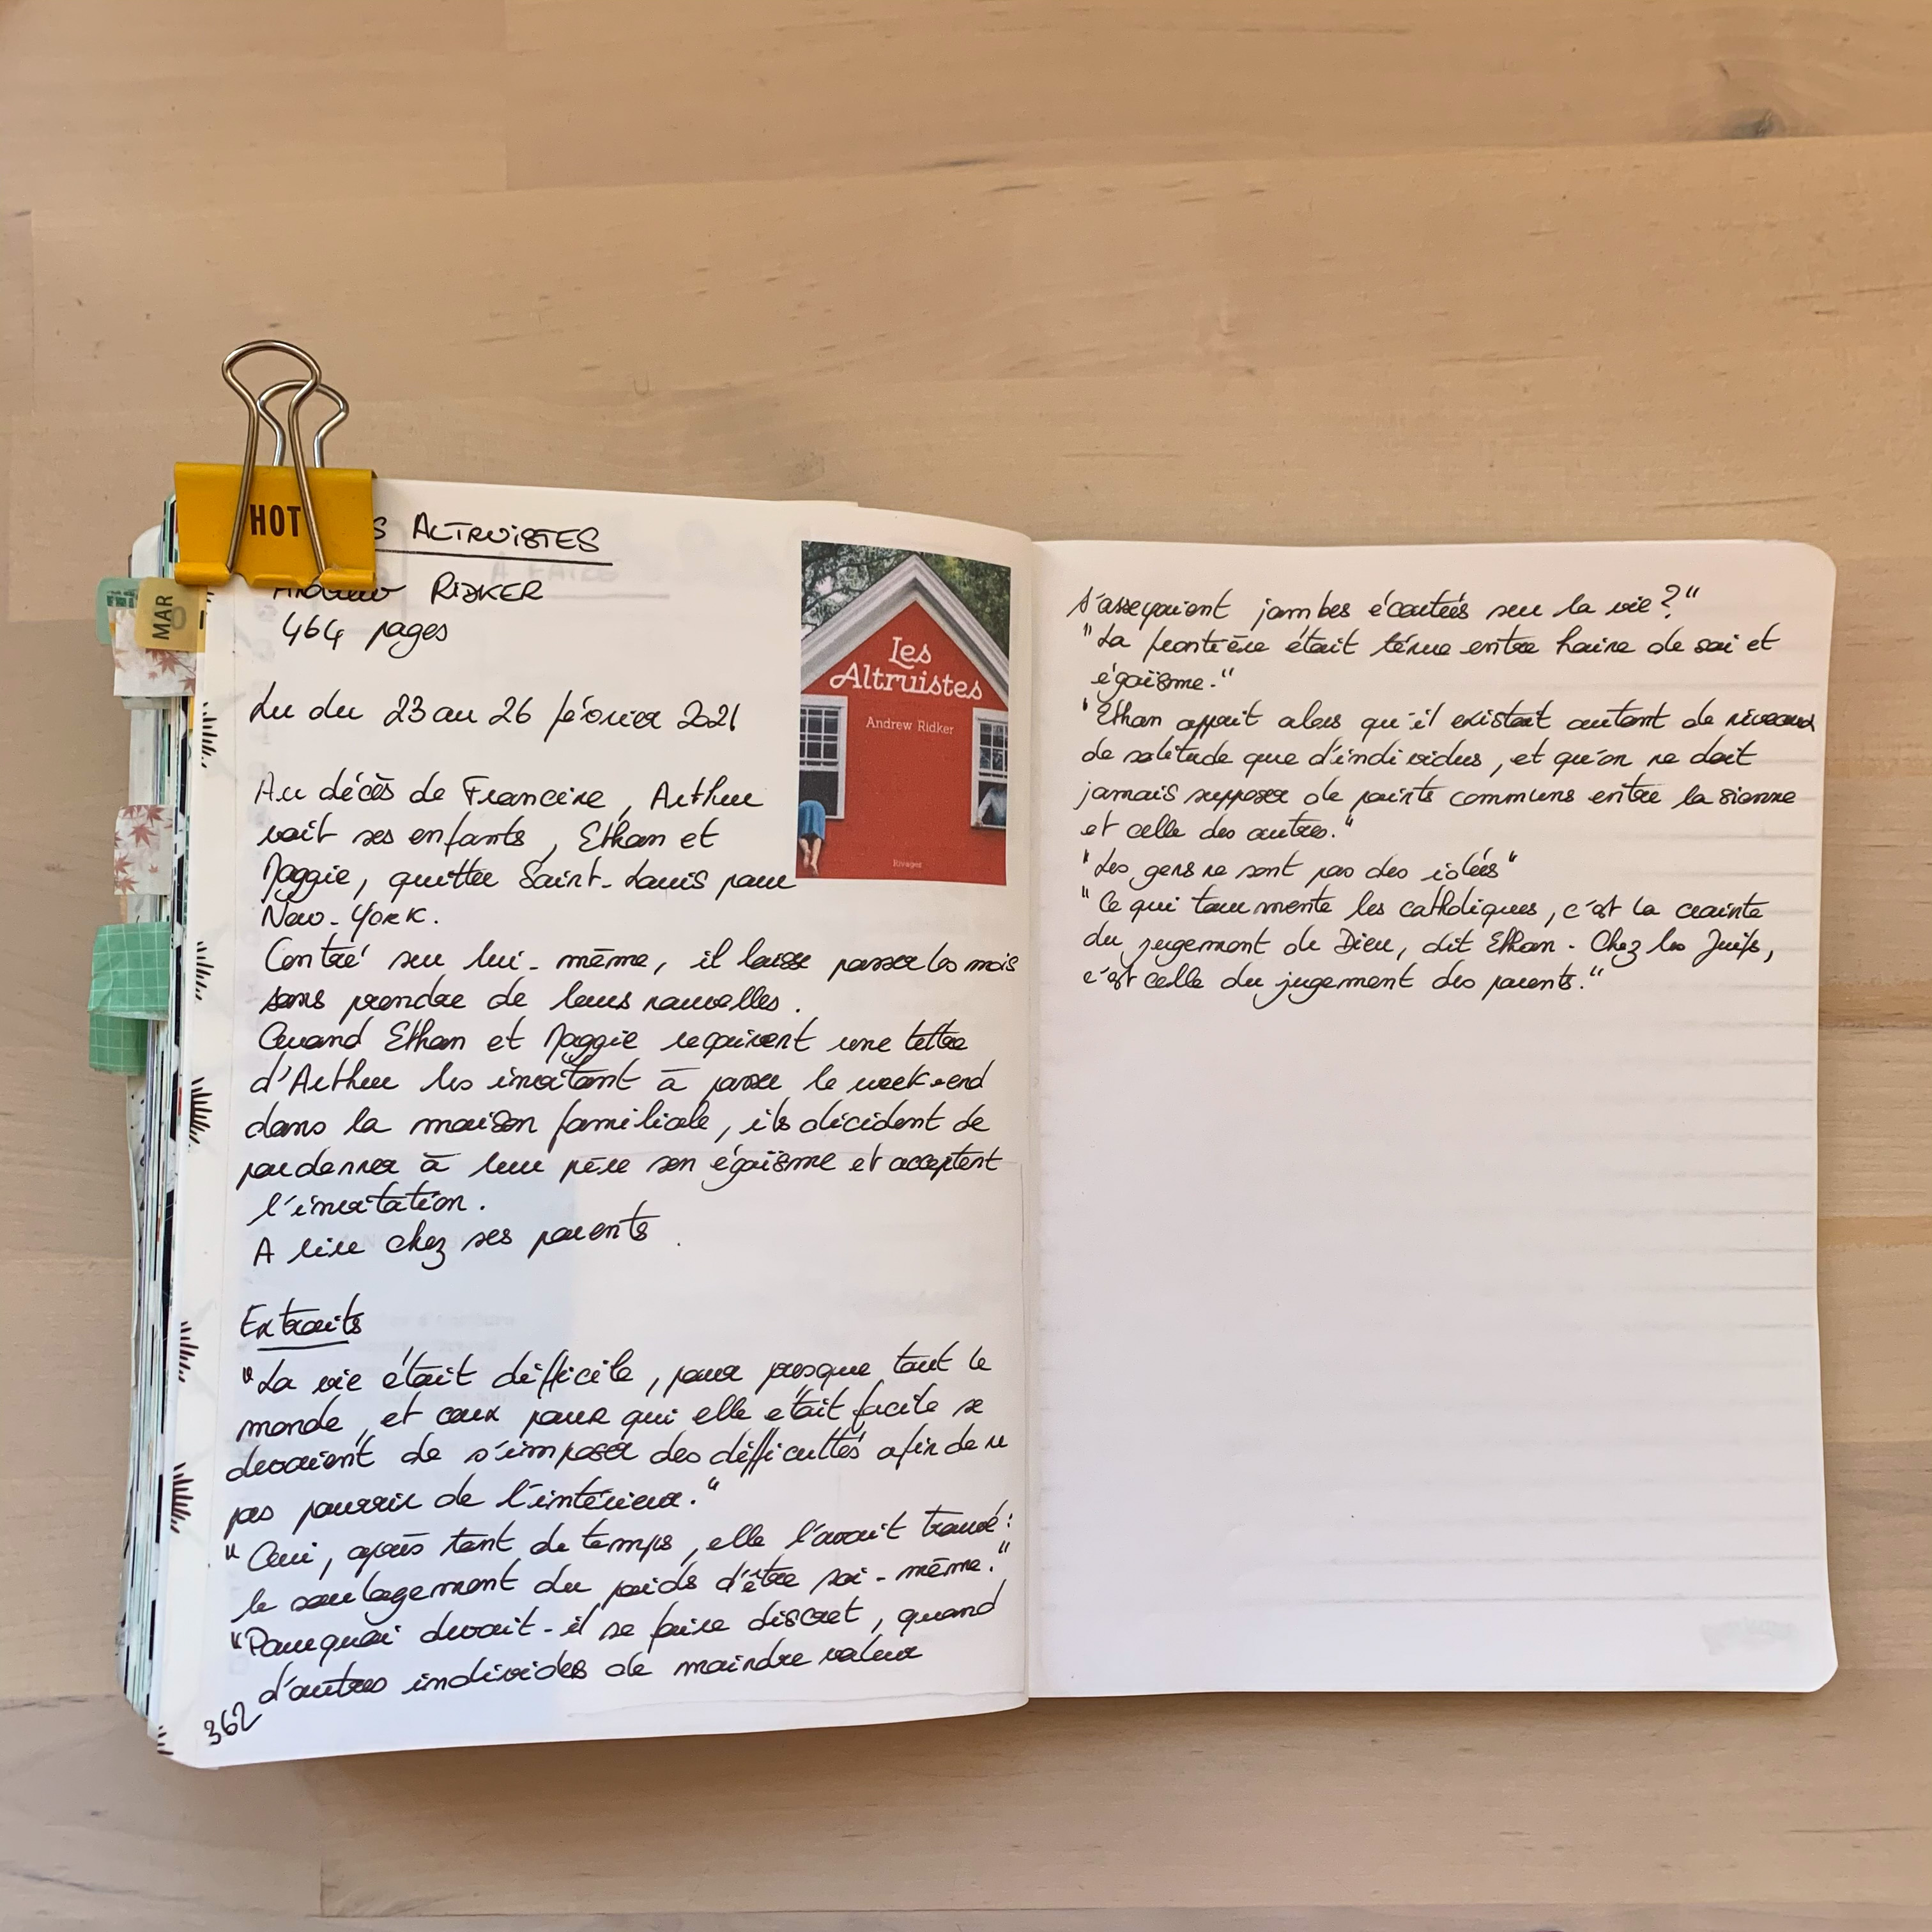 HOT
S ALTRUISTES
RIDKER
464 pages
MAR
Lu du 23 au 26 février 2021
Les
Altruistes
Andrew Ridker
Rivages
Au décès de Francine, Arthur
voit ses enfants, Ethan et
Maggie, quitter Saint-Louis pour
New-York.
Centré sur lui-même, il laisse passer les mois
sans prendre de leurs nouvelles.
Quand Ethan et Maggie reçoivent une lettre
d'Arthur les invitant à passer le week-end
dans la maison familiale, ils décident de
pardonner à leur père son égoïsme et acceptent
l'invitation.
A lire chez ses parents.
Extraits
"La vie était difficile, pour presque tout le
monde, et ceux pour qui elle était facile se
devaient de s'imposer des difficultés afin de ne
pas pourrir de l'intérieur."
"Oui, après tant de temps, elle l'avait trouvé:
le soulagement du poids d'être soi-même."
"Pourquoi devait-il se faire discret, quand
d'autres individes de moindre valeur
362
s'asseyaient jambes écartées sur la vie?"
"La frontière était ténue entre haine de soi et
égoïsme."
"Ethan apprit alors qu'il existait autant de niveaux
de solitude que d'individus, et qu'on ne doit
jamais supposer de points communs entre la sienne
et celle des autres."
"Les gens ne sont pas des idées"
"Ce qui tourmente les catholiques, c'est la crainte
du jugement de Dieu, dit Ethan. Chez les Juifs,
c'est celle du jugement des parents."